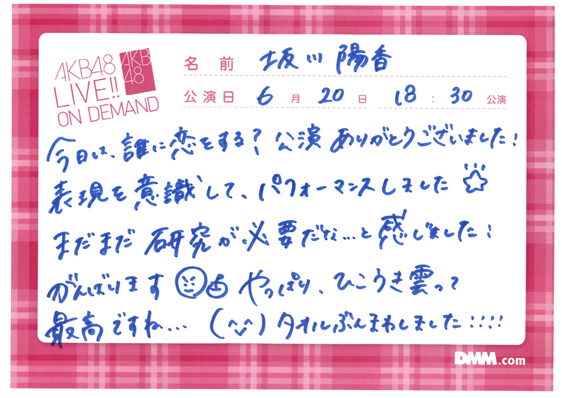 AKB48
LIVE!!
ON DEMAND
AKB
48
名前 坂川陽香
公演日 6月20日 18:30公演
今日は、誰に恋をする?公演 ありがとうございました!
表現を意識して、パフォーマンスしました☆
まだまだ研究が必要だな…と感じました!
がんばります やっぱり、ひこうき雲って
最高ですね… (^^) タオルぶんまわしました!!!!
DMM.com